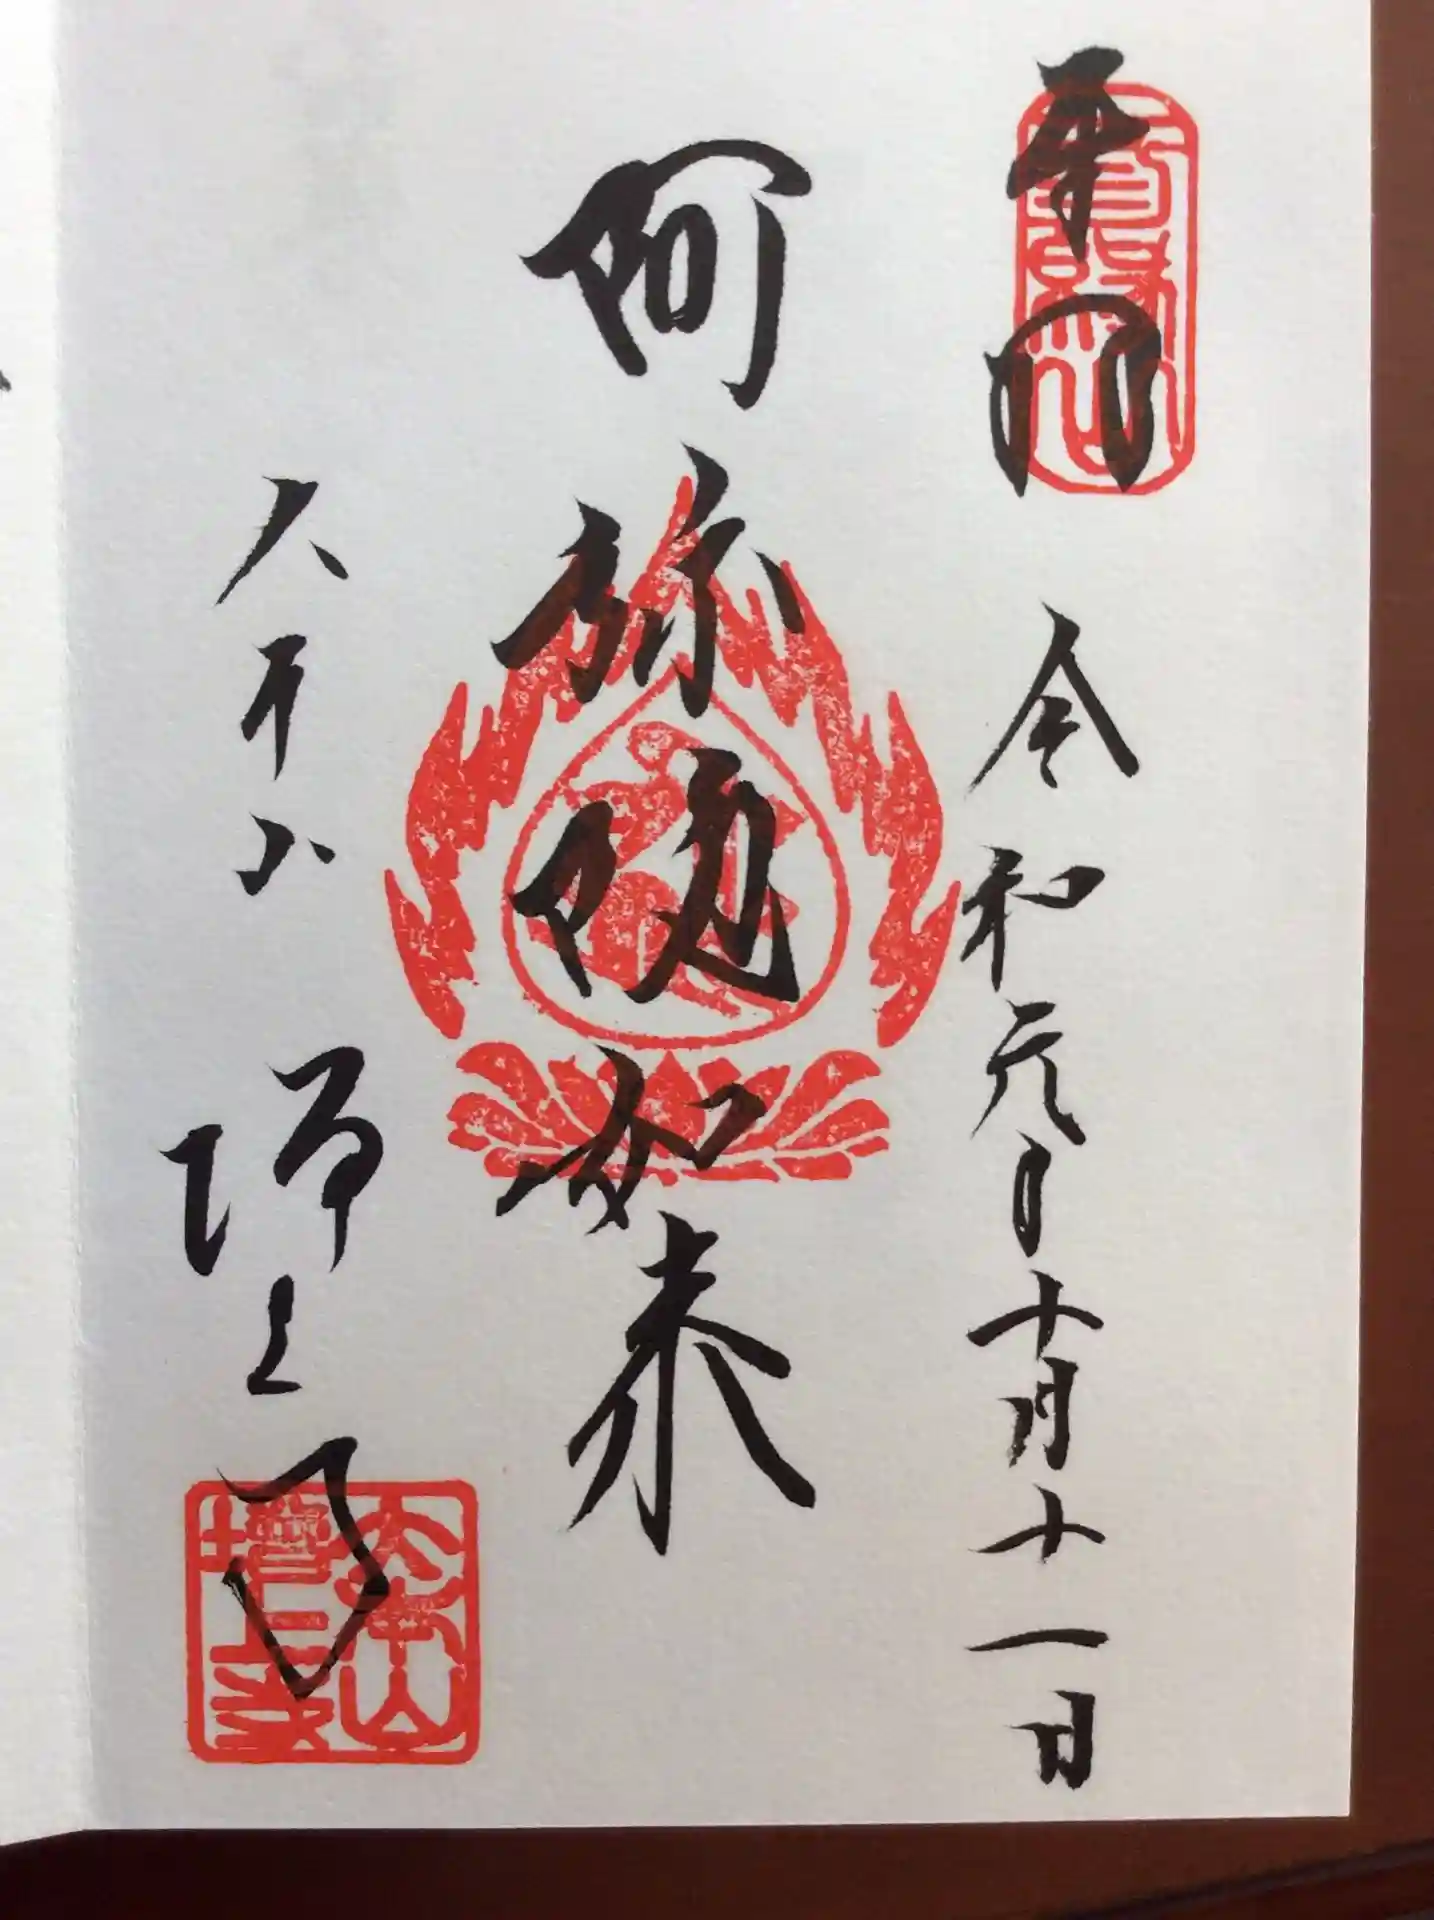 令和元年十月十一日
阿弥陀如来
大本山 増上寺
大本山
増上寺